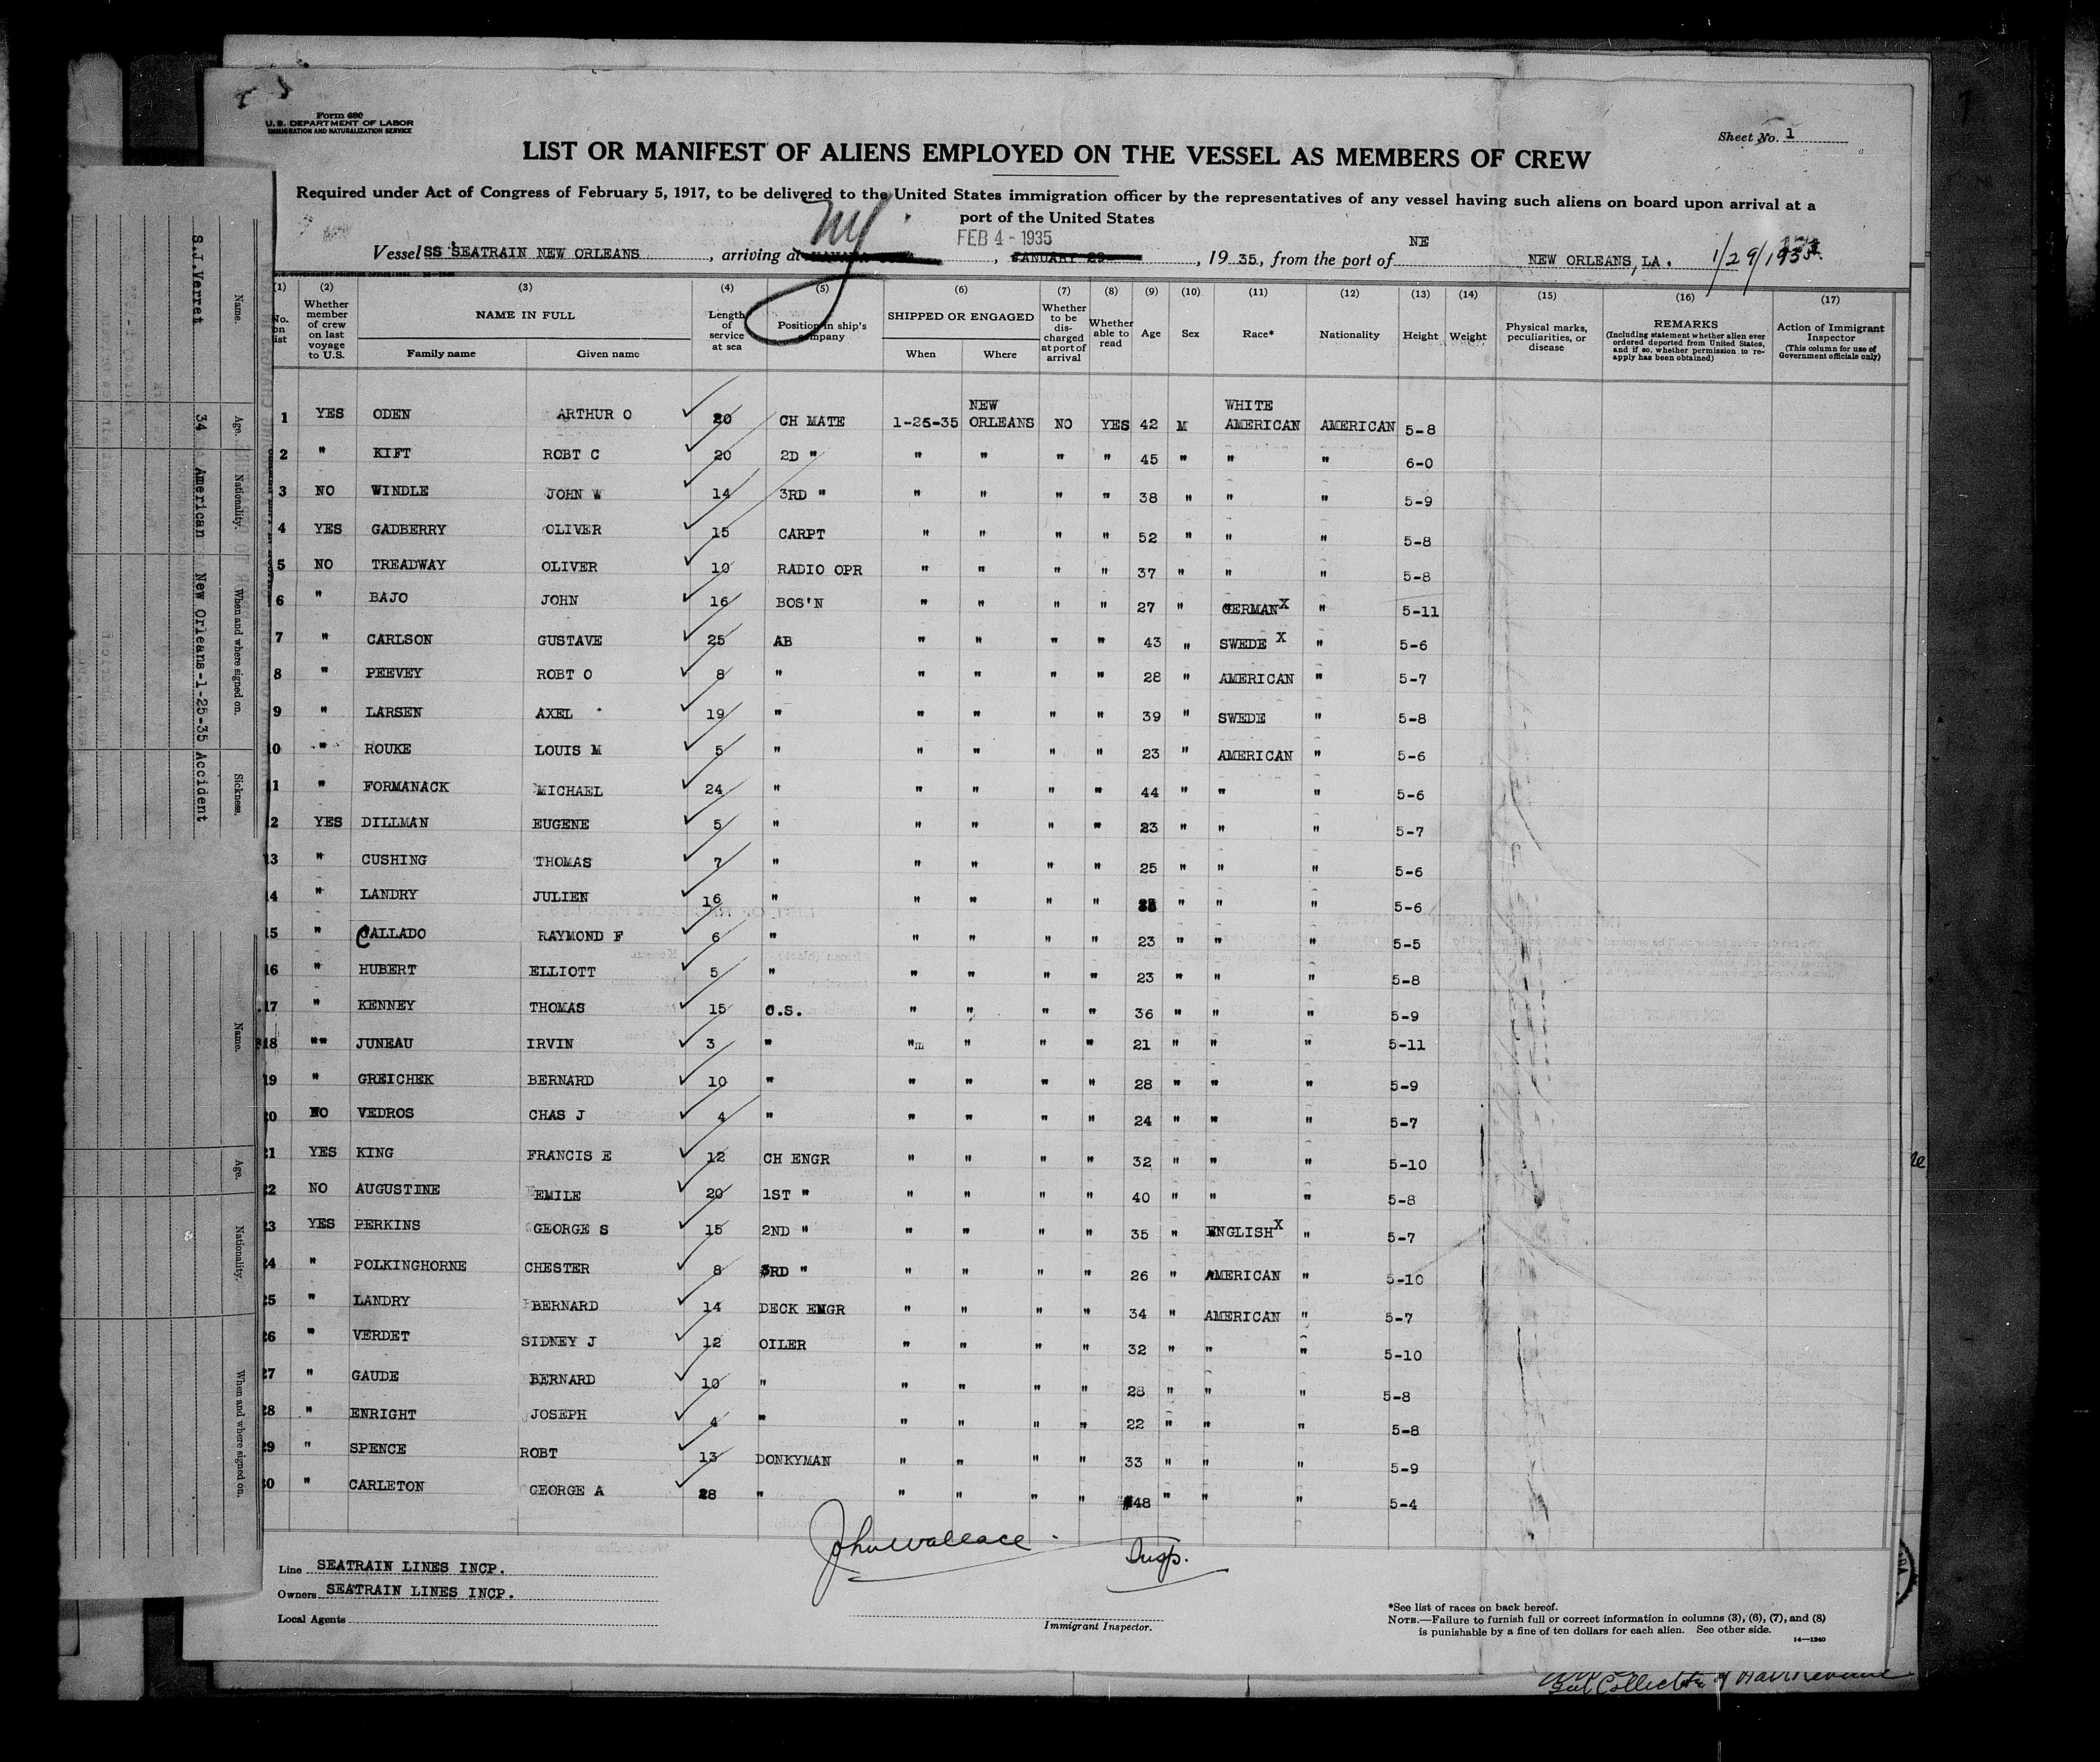 Form 680
U.S. DEPARTMENT OF LABOR
IMMIGRATION AND NATURALIZATION SERVICE
Sheet No. 1
LIST OR MANIFEST OF ALIENS EMPLOYED ON THE VESSEL AS MEMBERS OF CREW
Required under Act of Congress of February 5, 1917, to be delivered to the United States immigration officer by the representatives of any vessel having such aliens on board upon arrival at a
port of the United States
NY
FEB 4 - 1935
NE
Vessel SS SEATRAIN NEW ORLEANS, arriving at , JANUARY 29, 19 35, from the port of NEW ORLEANS, LA. 1/29/1935
(1) (2) (3) (4) (5) (6) (7) (8) (9) (10) (11) (12) (13) (14) (15) (16) (17)
No. on list Whether member of crew on last voyage to U.S. NAME IN FULL Family name Given name Length of service at sea Position in ship's company SHIPPED OR ENGAGED When Where Whether to be discharged at port of arrival Whether able to read Age Sex Race* Nationality Height Weight Physical marks, peculiarities, or disease REMARKS (Including statement whether alien ever ordered deported from United States, and if so, whether permission to reapply has been obtained) Action of Immigrant Inspector (This column for use of Government officials only)
1 YES ODEN ARTHUR O 20 CH MATE 1-25-35 NEW ORLEANS NO YES 42 M WHITE AMERICAN AMERICAN 5-8
2 " KIFT ROBT C 20 2D " " " " " 45 " " " 6-0
3 NO WINDLE JOHN W 14 3RD " " " " " 38 " " " 5-9
4 YES GADBERRY OLIVER 15 CARPT " " " " 52 " " " 5-8
5 NO TREADWAY OLIVER 10 RADIO OPR " " " " 37 " " " 5-8
6 " BAJO JOHN 16 BOS'N " " " " 27 " GERMAN X " 5-11
7 " CARLSON GUSTAVE 25 AB " " " " 43 " SWEDE X " 5-6
8 " PEEVEY ROBT O 8 " " " " " 28 " AMERICAN " 5-7
9 " LARSEN AXEL 19 " " " " " 39 " SWEDE " 5-8
10 " ROUKE LOUIS M 5 " " " " " 23 " AMERICAN " 5-6
11 " FORMANACK MICHAEL 24 " " " " " 44 " " " 5-6
12 YES DILLMAN EUGENE 5 " " " " " 23 " " " 5-7
13 " CUSHING THOMAS 7 " " " " " 25 " " " 5-6
14 " LANDRY JULIEN 16 " " " " " " " " 5-6
15 " CALLADO RAYMOND F 6 " " " " " 23 " " " 5-5
16 " HUBERT ELLIOTT 5 " " " " " 23 " " " 5-8
17 " KENNEY THOMAS 15 O.S. " " " " 36 " " " 5-9
18 "" JUNEAU IRVIN 3 " "m " " " 21 " " " 5-11
19 " GREICHEK BERNARD 10 " " " " " 28 " " " 5-9
20 NO VEDROS CHAS J 4 " " " " " 24 " " " 5-7
21 YES KING FRANCIS E 12 CH ENGR " " " " 32 " " " 5-10
22 NO AUGUSTINE EMILE 20 1ST " " " " " 40 " " " 5-8
23 YES PERKINS GEORGE S 15 2ND " " " " " 35 " ENGLISH X " 5-7
24 " POLKINGHORNE CHESTER 8 3RD " " " " " 26 " AMERICAN " 5-10
25 " LANDRY BERNARD 14 DECK ENGR " " " " 34 " AMERICAN " 5-7
26 " VERDET SIDNEY J 12 OILER " " " " 32 " " " 5-10
27 " GAUDE BERNARD 10 " " " " " 28 " " " 5-8
28 " ENRIGHT JOSEPH 4 " " " " " 22 " " " 5-8
29 " SPENCE ROBT 13 DONKYMAN " " " " 33 " " " 5-9
30 " CARLETON GEORGE A 28 " " " " " 48 " " " 5-4
John Wallace Insp.
Line SEATRAIN LINES INCP.
Owners SEATRAIN LINES INCP.
Local Agents
Immigrant Inspector.
*See list of races on back hereof.
NOTE.—Failure to furnish full or correct information in columns (3), (6), (7), and (8)
is punishable by a fine of ten dollars for each alien. See other side.
14—1240
Name. Age. Nationality. When and where signed on. Sickness.
S.J.Verret 34 American New Orleans-1-25-35 Accident
Name. Age. Nationality. When and where signed on.